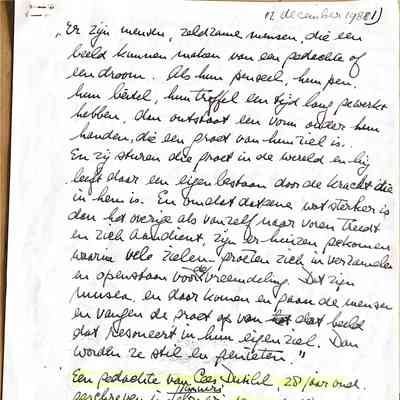 12 december 1988 1)
"Er zijn mensen, zeldzame mensen, die een
beeld kunnen maken van een gedachte of
een droom. Als hun penseel, hun pen,
hun beitel, hun troffel een tijd lang gewerkt
hebben, dan ontstaat een vorm onder hun
handen, die een groet van hun ziel is.
En zij sturen die groet in de wereld en hij
leeft daar een eigen bestaan door de kracht die
in hem is. En omdat datgene wat sterker is
dan het overige als vanzelf naar voren treedt
en zich aandient, zijn er huizen gekomen
waarin vele zielen-groeten zich verzamelen
en openstaan voor de vreemdeling. Dit zijn
musea, en daar komen en gaan de mensen
en vangen de groet op van dat beeld
dat resoneert in hun eigen ziel. Dan
worden ze stil en genieten."
Een gedachte van Cees 28 jaar oud.
geschreven in